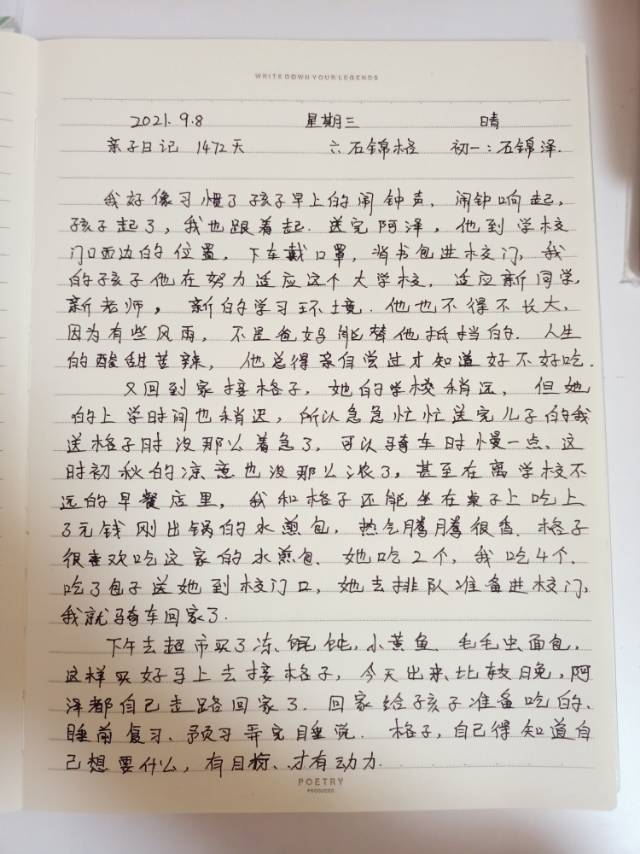 WRITE DOWN YOUR LEGENDS
2021.9.8 星期三 晴
亲子日记 1472天 六石锦格 初一:石锦泽.
我好像习惯了孩子早上的闹钟声、闹钟响起,
孩子起了,我也跟着起.送完阿泽,他到学校
门口西边的位置,下车戴口罩,背书包进校门,我
的孩子他在努力适应这个大学校,适应新同学,
新老师,新的学习环境.他也不得不长大,
因为有些风雨,不是爸妈能替他抵挡的.人生
的酸甜苦辣,他总得亲自尝过才知道好不好吃.
又回到家接格子,她的学校稍远,但她
的上学时间也稍迟,所以急急忙忙送完儿子的我
送格子时没那么着急了,可以骑车时慢一点、这
时初秋的凉意也没那么浓了,甚至在离学校不
远的早餐店里,我和格子还能坐在桌子上吃上
3元钱刚出锅的水煎包,热气腾腾很香.格子
很喜欢吃这家的水煎包.她吃2个,我吃4个.
吃了包子送她到校门口,她去排队准备进校门,
我就骑车回家了.
下午去超市买了冻馄饨,小黄鱼、毛毛虫面包,
这样买好马上去接格子,今天出来比较晚,阿
泽都自己走路回家了.回家给孩子准备吃的、
睡前复习、预习弄完睡觉.格子,自己得知道自
己想要什么,有目标、才有动力.
POETRY
PRODUCED